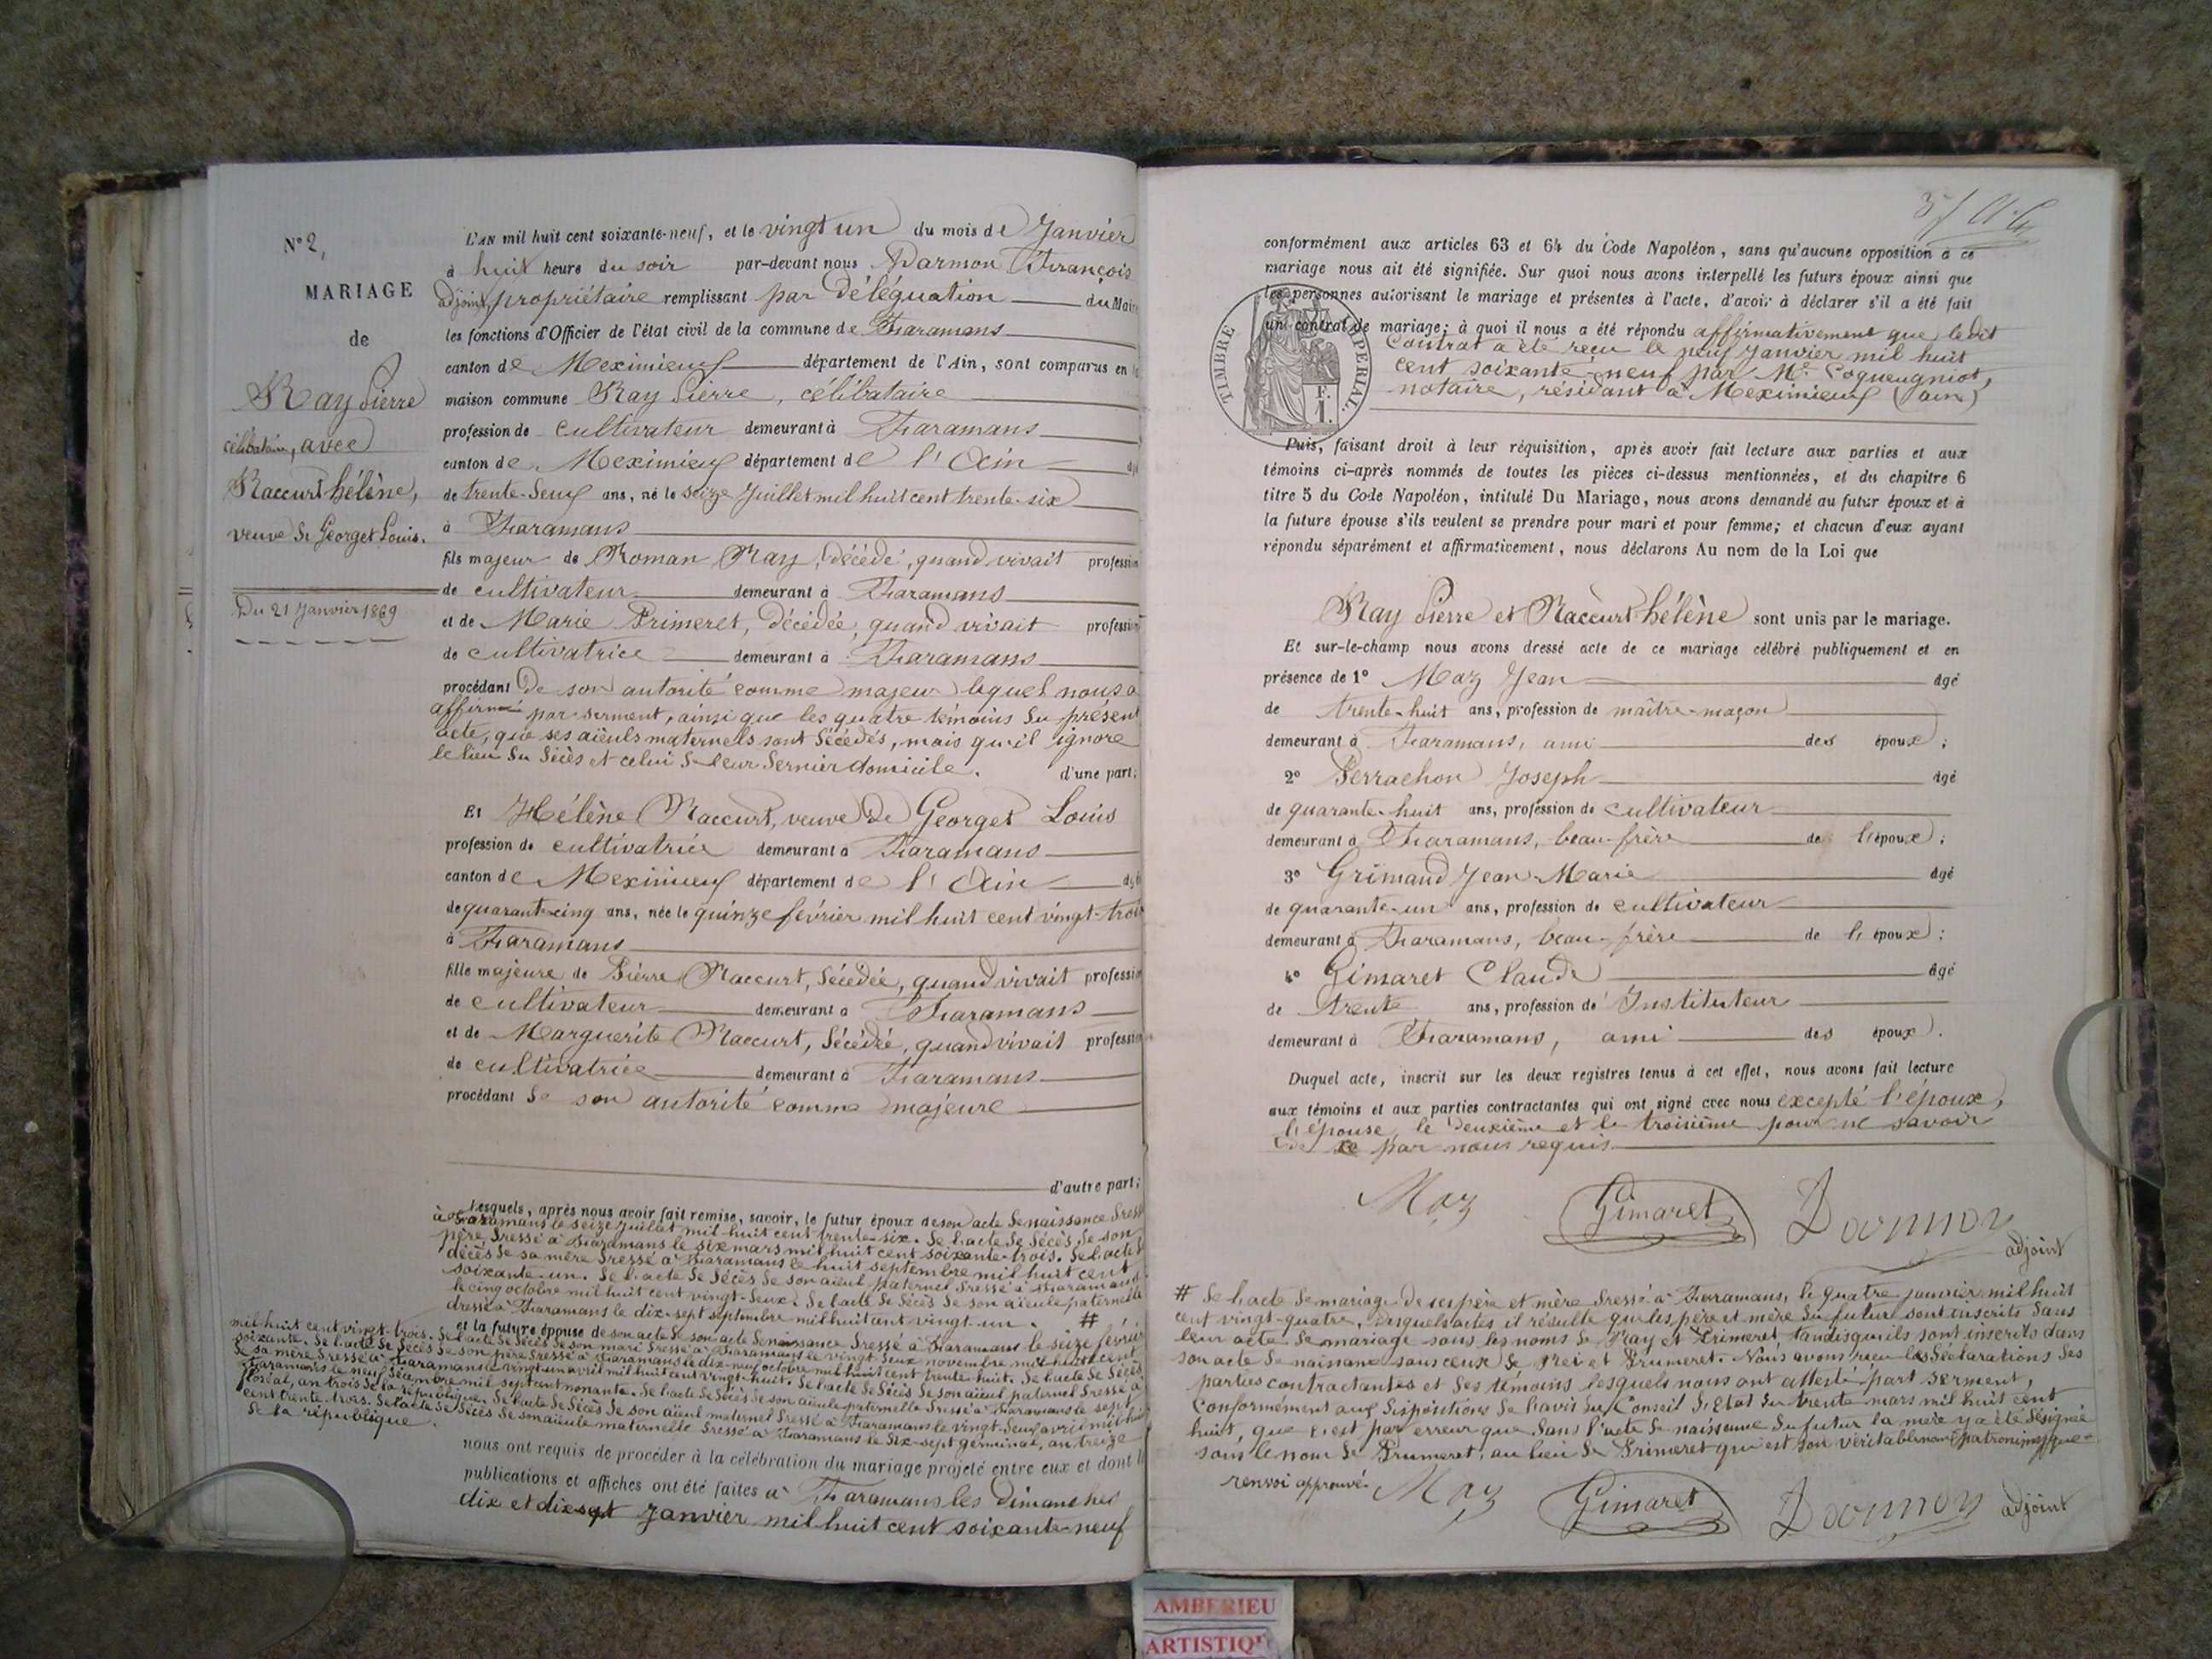 N° 2,
MARIAGE
de
Ray Pierre
célibataire, avec
Raccurt hélène,
veuve de Georget Louis.
Du 21 Janvier 1869
L'AN mil huit cent soixante-neuf, et le vingt un du mois de Janvier
à huit heure du soir par-devant nous Darmon François
adjoint, propriétaire remplissant par délégation du Maire
les fonctions d'Officier de l'état civil de la commune de Faramans
canton de Meximieux département de l'Ain, sont comparus en la
maison commune Ray Pierre, célibataire
profession de cultivateur demeurant à Faramans
canton de Meximieux département de l'Ain âgé
de trente-deux ans, né le seize Juillet mil huit cent trente-six
à Faramans
fils majeur de Roman Ray, décédé, quand vivait profession
de cultivateur demeurant à Faramans
et de Marie Primeret, décédée, quand vivait profession
de cultivatrice demeurant à Faramans
procédant de son autorité comme majeur lequel nous a
affirmé par serment, ainsi que les quatre témoins du présent
acte, que ses aïeuls maternels sont décédés, mais qu'il ignore
le lieu du décès et celui de leur dernier domicile. d'une part;
Et Hélène Raccurt, veuve de Georget Louis
profession de cultivatrice demeurant à Faramans
canton de Meximieux département de l'Ain âgé
de quarante-cinq ans, née le quinze février mil huit cent vingt-trois
à Faramans
fille majeure de Pierre Raccurt, décédée, quand vivait profession
de cultivateur demeurant à Faramans
et de Marguerite Raccurt, décédée, quand vivait profession
de cultivatrice demeurant à Faramans
procédant de son autorité comme majeure
d'autre part;
Lesquels, après nous avoir fait remise, savoir, le futur époux de son acte de naissance dressé
à Faramans le seize juillet mil huit cent trente-six. de l'acte de décès de son
père dressé à Faramans le six mars mil huit cent soixante-trois. de l'acte de
décès de sa mère dressé à Faramans le huit septembre mil huit cent
soixante-un. de l'acte de décès de son aïeul paternel dressé à Faramans
le cinq octobre mil huit cent vingt-deux. de l'acte de décès de son aïeule paternelle
dressé à Faramans le dix-sept septembre mil huit cent vingt-un. #
et la future épouse de son acte de son acte de naissance dressé à Faramans le seize février
mil huit cent vingt-trois. de l'acte de décès de son mari dressé à Faramans le vingt-deux novembre mil huit cent
soixante. de l'acte de décès de son père dressé à Faramans le dix-neuf octobre mil huit cent trente-huit. de l'acte de décès
de sa mère dressé à Faramans le vingt-un avril mil huit cent vingt-huit. de l'acte de décès de son aïeul paternel dressé à
Faramans le neuf décembre mil sept cent nonante. de l'acte de décès de son aïeule paternelle dressé à Faramans le sept
floréal, an trois de la république. de l'acte de décès de son aïeul maternel dressé à Faramans le vingt-deux avril mil huit
cent trente-trois. de l'acte de décès de son aïeule maternelle dressé à Faramans le dix-sept germinal, an treize
de la république.
nous ont requis de procéder à la célébration du mariage projeté entre eux et dont les
publications et affiches ont été faites à Faramans les Dimanches
dix et dix-sept Janvier mil huit cent soixante-neuf
conformément aux articles 63 et 64 du Code Napoléon, sans qu'aucune opposition à ce
mariage nous ait été signifiée. Sur quoi nous avons interpellé les futurs époux ainsi que
les personnes autorisant le mariage et présentes à l'acte, d'avoir à déclarer s'il a été fait
un contrat de mariage; à quoi il nous a été répondu affirmativement que ledit
Contrat a été reçu le neuf Janvier mil huit
cent soixante-neuf par Me Coqueugniot,
notaire, résidant à Meximieux (Ain)
TIMBRE IMPERIAL.
F.
1.
Puis, faisant droit à leur réquisition, après avoir fait lecture aux parties et aux
témoins ci-après nommés de toutes les pièces ci-dessus mentionnées, et du chapitre 6
titre 5 du Code Napoléon, intitulé Du Mariage, nous avons demandé au futur époux et à
la future épouse s'ils veulent se prendre pour mari et pour femme; et chacun d'eux ayant
répondu séparément et affirmativement, nous déclarons Au nom de la Loi que
Ray Pierre et Raccurt hélène sont unis par le mariage.
Et sur-le-champ nous avons dressé acte de ce mariage célébré publiquement et en
présence de 1° Maz Jean âgé
de trente-huit ans, profession de maître-maçon
demeurant à Faramans, ami des époux;
2° Perrachon Joseph âgé
de quarante-huit ans, profession de cultivateur
demeurant à Faramans, beau-frère de l'époux;
3° Grimaud Jean-Marie âgé
de quarante-un ans, profession de cultivateur
demeurant à Faramans, beau-frère de l'époux;
4° Gimaret Claude âgé
de trente ans, profession de Instituteur
demeurant à Faramans, ami des époux.
Duquel acte, inscrit sur les deux registres tenus à cet effet, nous avons fait lecture
aux témoins et aux parties contractantes qui ont signé avec nous excepté l'époux,
l'épouse, le deuxième et le troisième pour ne savoir
de ce par nous requis
Maz Gimaret Darmon
adjoint
# de l'acte de mariage de ses père et mère dressé à Faramans, le quatre janvier mil huit
cent vingt-quatre, desquels actes il résulte que les père et mère du futur sont inscrits dans
leur acte de mariage sous les noms de Ray et Primeret tandis qu'ils sont inscrits dans
son acte de naissance sous ceux de Rei et Prumeret. Nous avons reçu les déclarations des
parties contractantes et des témoins lesquels nous ont attesté part serment,
Conformément aux dispositions de l'avis du Conseil d'Etat du trente mars mil huit cent
huit, que c'est par erreur que dans l'acte de naissance du futur la mère y a été désignée
sous le nom de Prumeret, au lieu de Primeret qui est son véritable nom patronimyque.
renvoi approuvé. Maz Gimaret Darmon adjoint
AMBERIEU
ARTISTIQU